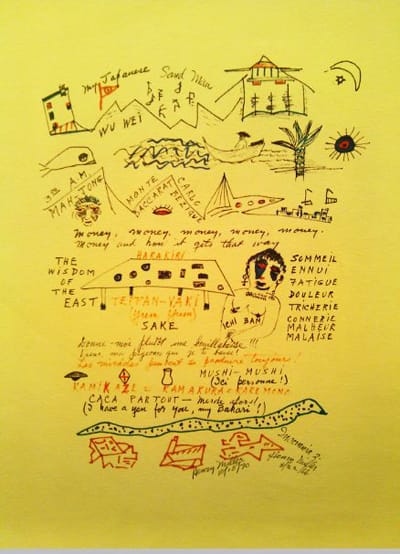 My Japanese Sand Man
WU WEI
3:00 A.M.
MAH JONG
MONTE CARLO
BACCARAT MEZIQUE
Money, money, money, money, money.
Money and how it gets that way
HARAKIRI
THE
WISDOM
OF
THE
EAST
TEPPAN-YAKI
(Yum Yum)
SAKE
ICHI BAN
SOMMEIL
ENNUI
FATIGUE
DOULEUR
TRICHERIE
CONNERIE
MALHEUR
MALAISE
Donne-moi plutôt une bouillabaisse!!!
Les miracles peuvent se produire toujours!
MUSHI-MUSHI
(Ici personne!)
KAMIKAZE = KAMAKURA = KAKEMONO
CACA PARTOUT — merde alors!
(I have a yen for you, my Bakari!)
Insomnia 2.
Henry Miller
Henry Miller